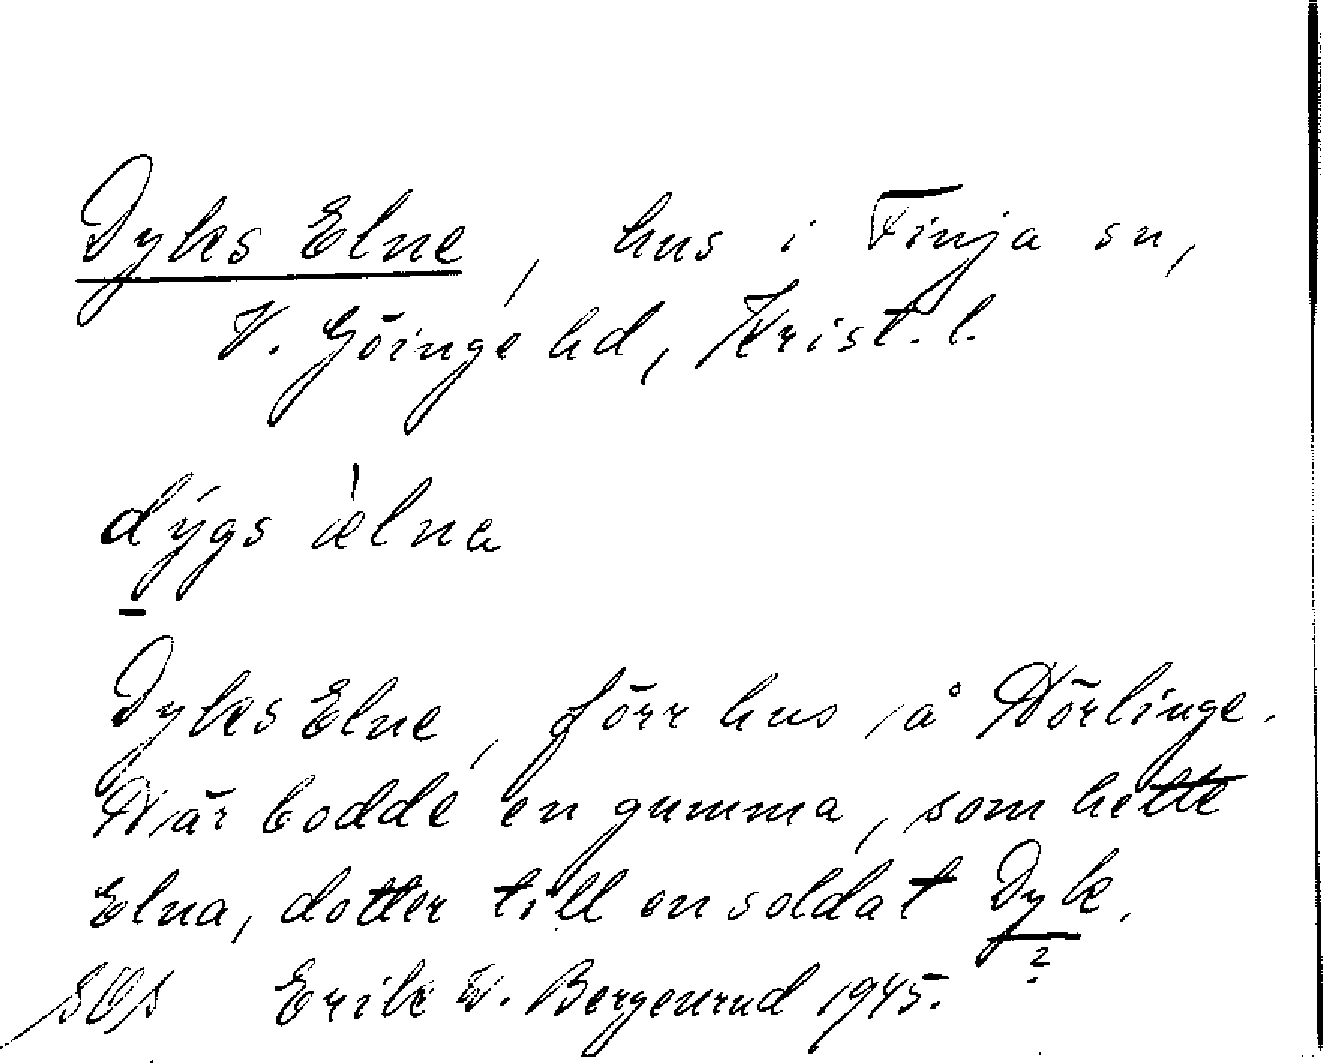 Dyks Elne, hus i Finja sn,
V. Göinge hd, Krist. l.
dýgs àelna
Dyks Elne, förr hus på Hörlinge.
Där bodde en gumma, som hette
Elna, dotter till en soldat Dyk.
?
Erik W. Bergenrud 1945.